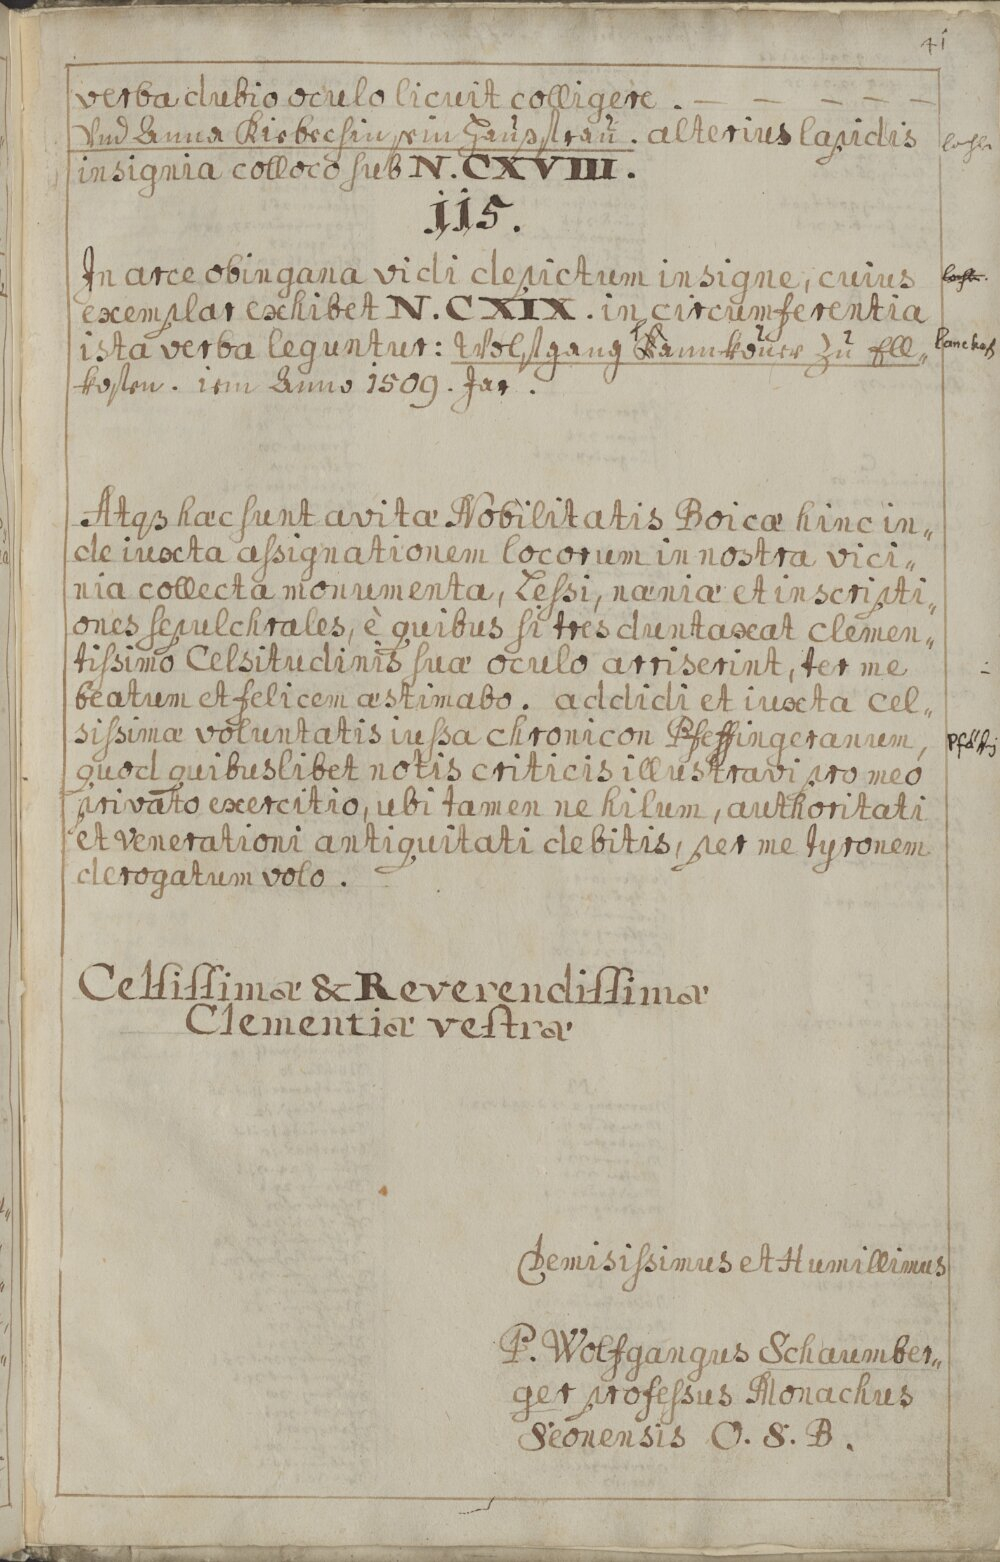 41
verba dubio oculo licuit colligere . — — — — —
Vnd Anna Kiebechin sein Haußfrau. alterius lapidis
insignia colloco sub N. CXVIII.
115.
In arce obingana vidi depictum insigne, cuius
exemplar exhibet N. CXIX. in circumferentia
ista verba leguntur: Wolfgang Bannkouer zu Ell„
kofen. im Anno 1509. Jar.
Atqз hæc sunt avitæ Nobilitatis Boicæ hinc in„
de iuxta assignationem locorum in nostra vici„
nia collecta monumenta, Lessi, næniæ et inscripti„
ones sepulchrales, è quibus si tres duntaxat clemen„
tissimo Celsitudinis suæ oculo arriserint, ter me
beatum et felicem æstimabo. addidi et iuxta Cel„
sissimæ voluntatis iussa chronicon Pfeffingeranum,
quod quibuslibet notis criticis illustravi pro meo
privato exercitio, ubi tamen ne hilum, authoritati
et venerationi antiquitati debitis, per me tyronem
derogatum volo.
Celsissimæ & Reverendissimæ
Clementiæ vestræ
Demisissimus et Humillimus
P. Wolfgangus Schaumber„
ger professus Monachus
Seonensis O. S. B.